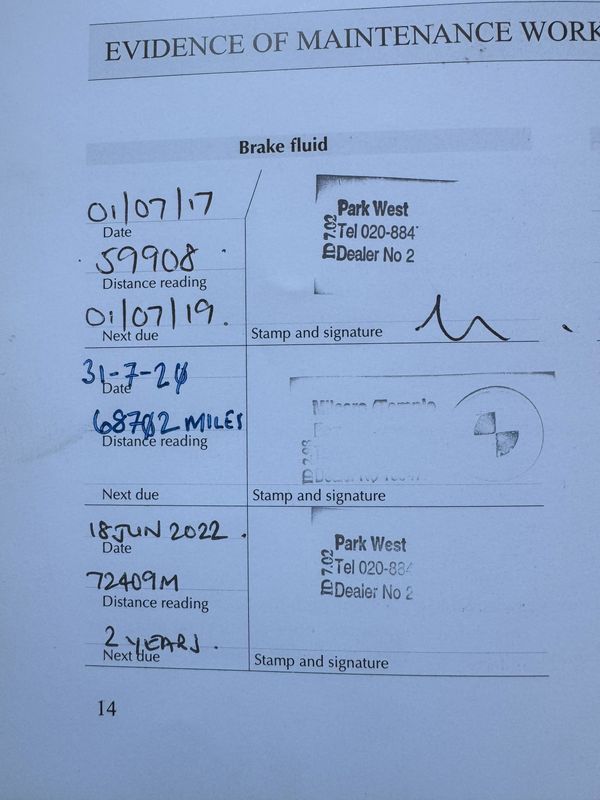 EVIDENCE OF MAINTENANCE WORK
Brake fluid
01/07/17
Date
59908
Distance reading
01/07/19.
Next due
ID 7.02
Park West
Tel 020-884
Dealer No 2
Stamp and signature
31-7-20
Date
68702 MILES
Distance reading
Next due
Stamp and signature
18 JUN 2022.
Date
72409M
Distance reading
2 YEARS.
Next due
ID 7.02
Park West
Tel 020-884
Dealer No 2
Stamp and signature
14